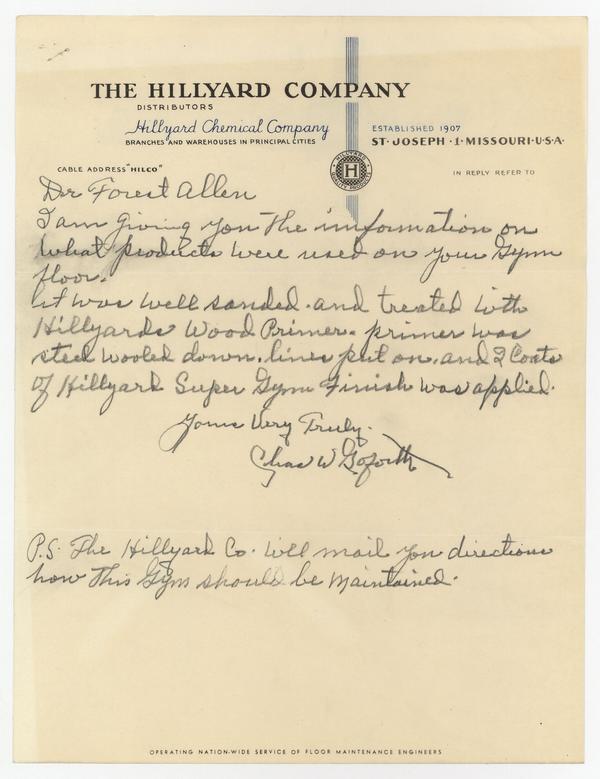 THE HILLYARD COMPANY
DISTRIBUTORS
Hillyard Chemical Company
BRANCHES AND WAREHOUSES IN PRINCIPAL CITIES
ESTABLISHED 1907
ST. JOSEPH · 1 · MISSOURI · U·S·A·
CABLE ADDRESS "HILCO"
HILLYARD
H
QUALITY PRODUCTS
IN REPLY REFER TO
Dr Forest Allen
I am giving you the information on
what products were used on your Gym
floor.
it was well sanded. and treated with
Hillyards Wood Primer. primer was
steel wooled down. lines put on. and 2 Coats
of Hillyard Super Gym Finish was applied.
Yours Very Truly.
Chas W Goforth
P.S. The Hillyard Co. will mail you directions
how This Gym should be maintained.
OPERATING NATION-WIDE SERVICE OF FLOOR MAINTENANCE ENGINEERS